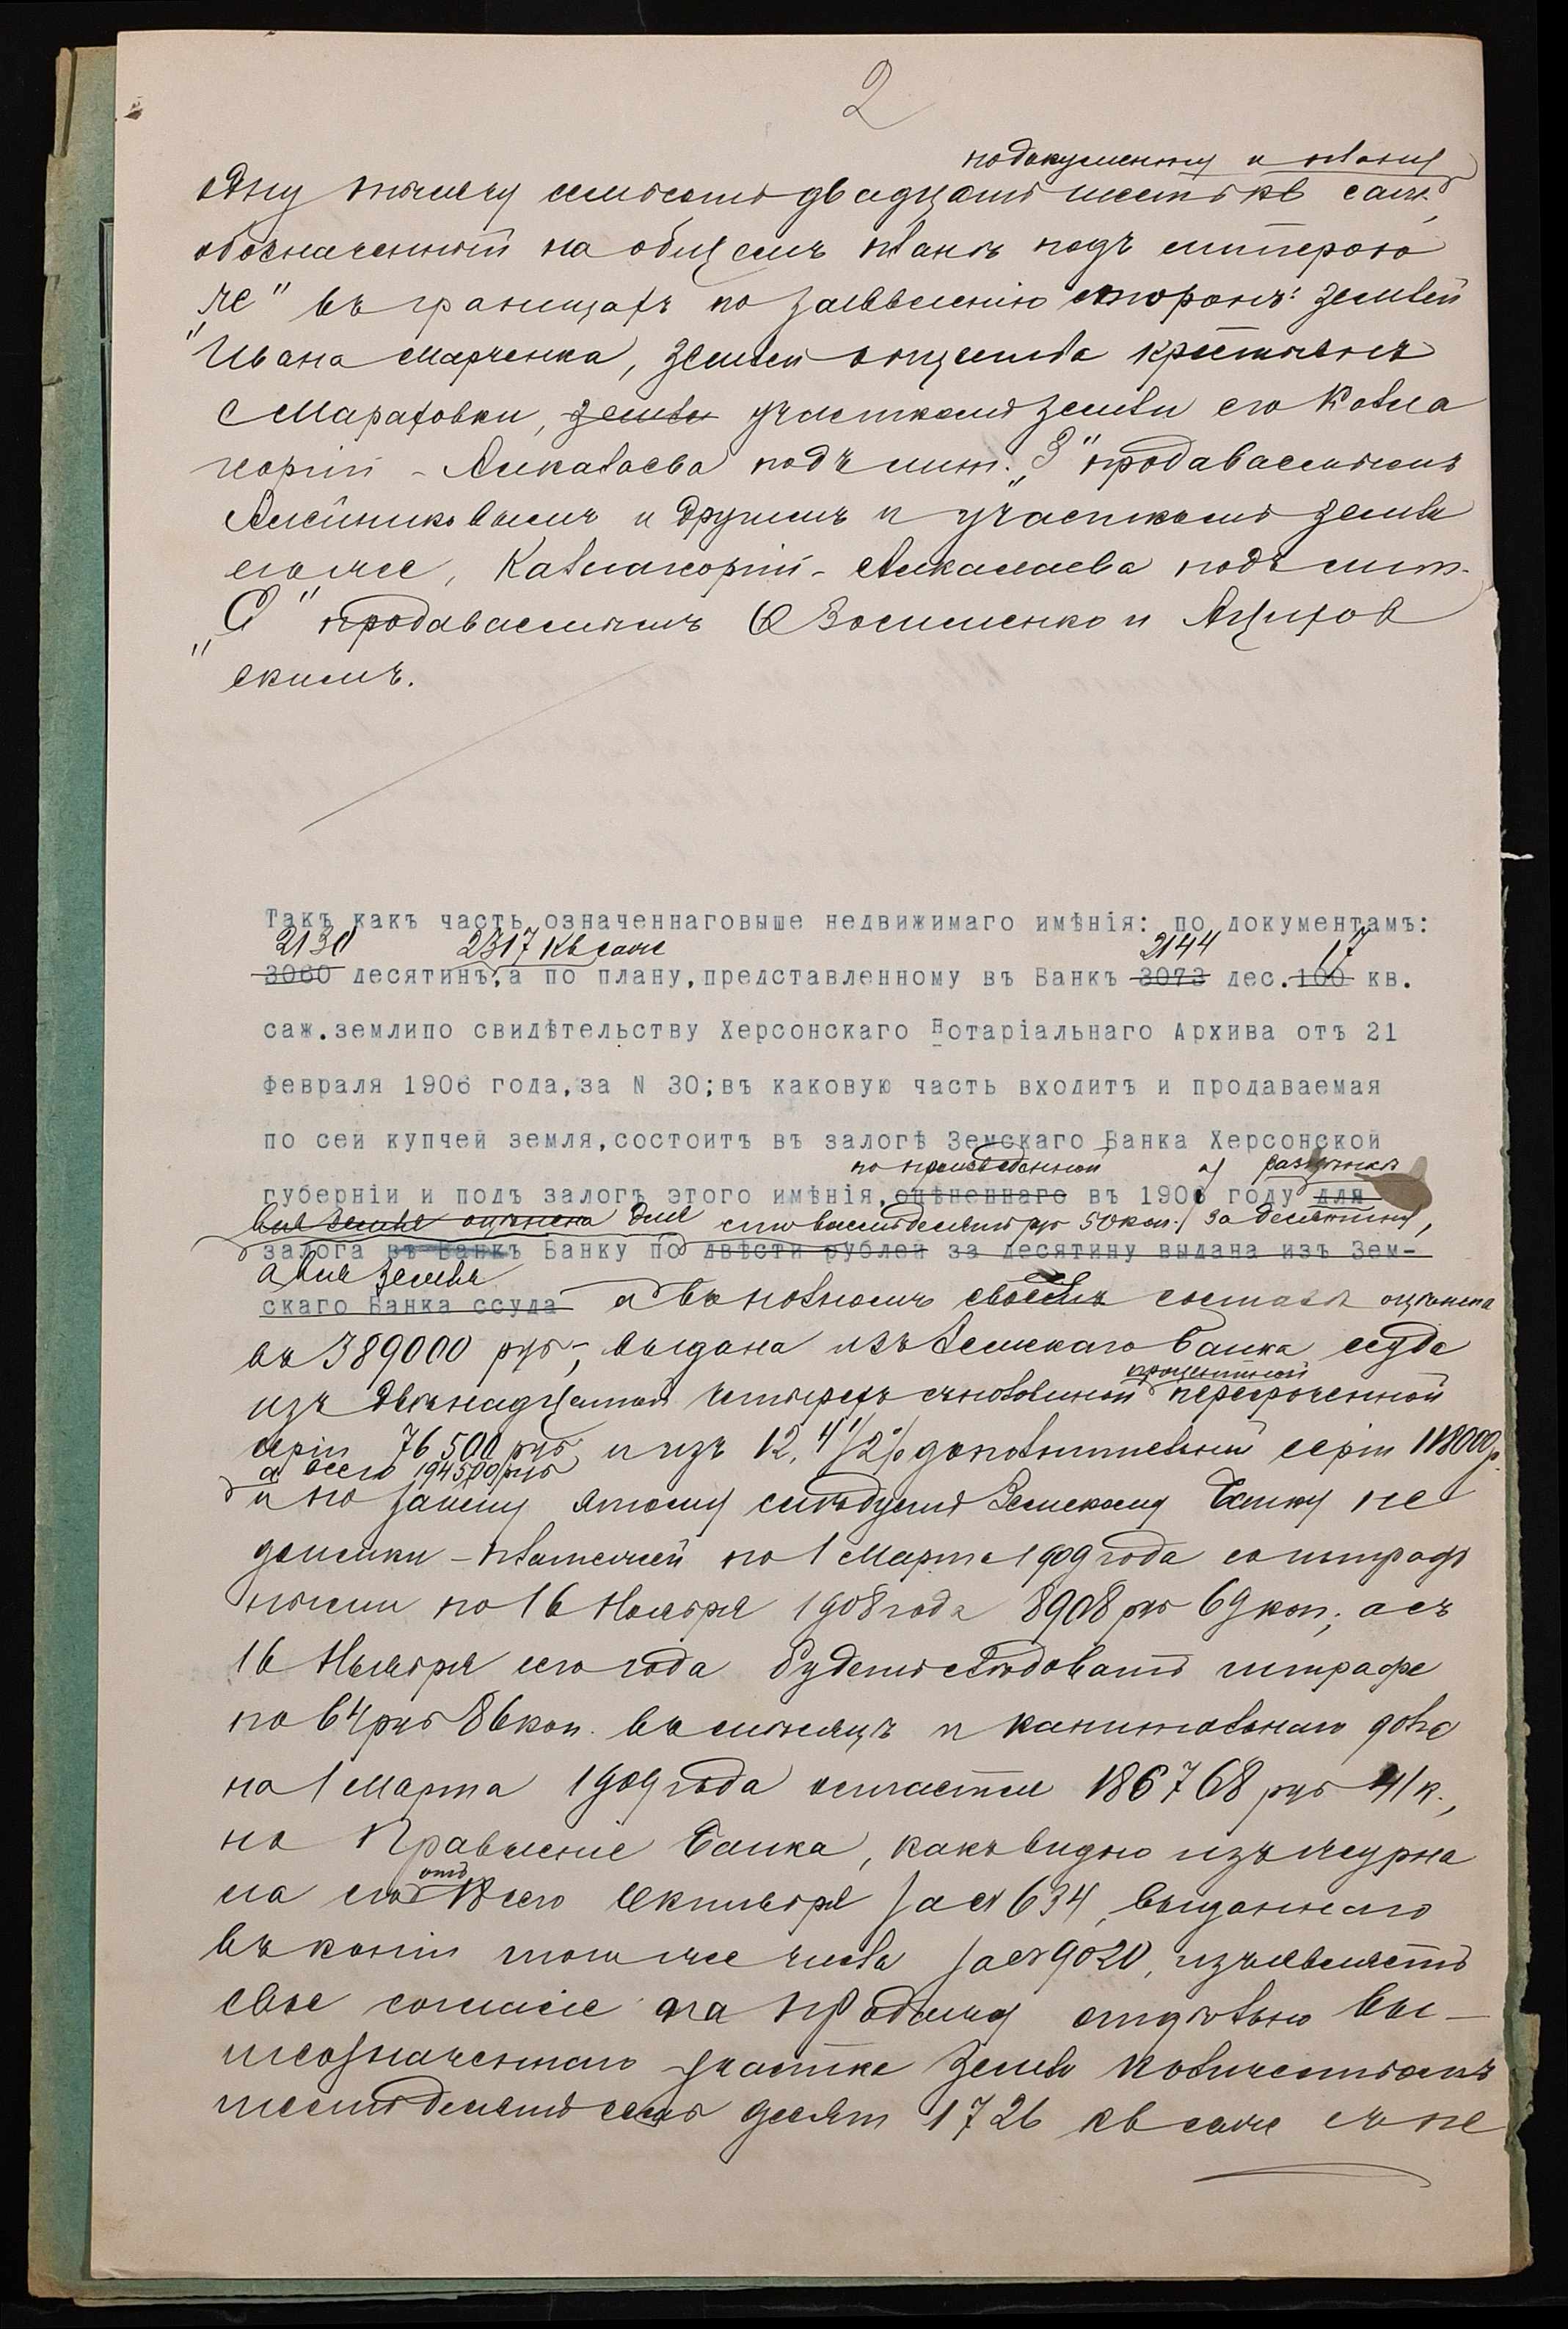 2
по документу и плану
одну тысячу семьсотъ двадцать шесть кв саж.,
обозначенный на общемъ планѣ подъ литерою
"Ж" въ границахъ по заявленію сторонъ: землей
Ивана Марченка, землей общества крестьянъ
с Марафовки, земли участкомъ земли его Катла
подъ лит. "З" продаваемымъ
Алейниковымъ и другимъ и участкомъ земли
его же, подъ лит.
"С" продаваемымъ и Яцихов
скимъ.
Такъ какъ часть означеннаговыше недвижимаго имѣнія: по документамъ:
2130 2317 кв саж 2144 17
3060 десятинъ,а по плану,представленному въ Банкъ 3073 дес.100 кв.
саж.землипо свидѣтельству Херсонскаго Нотаріальнаго Архива отъ 21
Февраля 1906 года,за N 30;въ каковую часть входитъ и продаваемая
по сей купчей земля,состоитъ въ залогѣ Земскаго Банка Херсонской
по произведенной
губерніи и подъ залогъ этого имѣнія,оцѣненнаго въ 1906 году для
вся земля оценена для сто восемьдесятъ руб 50 коп. за десятину,
залога въ Банкъ Банку по двѣсти рублей за десятину выдана изъ Зем-
а вся земля
скаго Банка ссуда а въ полномъ своемъ составѣ оцѣнена
въ 389000 руб., выдана изъ Земскаго Банка ссуда
процентной
изъ двѣнадцатой четырехъ съ половиной пересроченной
серіи 76500 руб и изъ 12, 4 1/2 % дополнительной серіи 118000 р.
а всего 194500 руб
и по займу этому слѣдуетъ Земскому Банку не
доимки - платежей по 1 Марта 1909 года со штраф
ными по 16 Ноября 1908 года 8908 руб 69 коп., а съ
16 Ноября сего года будетъ слѣдовать штрафа
по 64 руб 86 коп. въ мѣсяцъ и капитальнаго долга
на 1 Марта 1909 года останется 186768 руб 41 к.,
но Правленіе Банка, какъ видно изъ журна
отъ
ла его 18 сего Октября за № 634, выданнаго
въ копіи того же числа за № 9020, изъявляетъ
свое согласіе на продажу отдѣльно вы-
шеозначеннаго участка земли количествомъ
шестьдесятъ семь десят 1726 кв саж съ пе